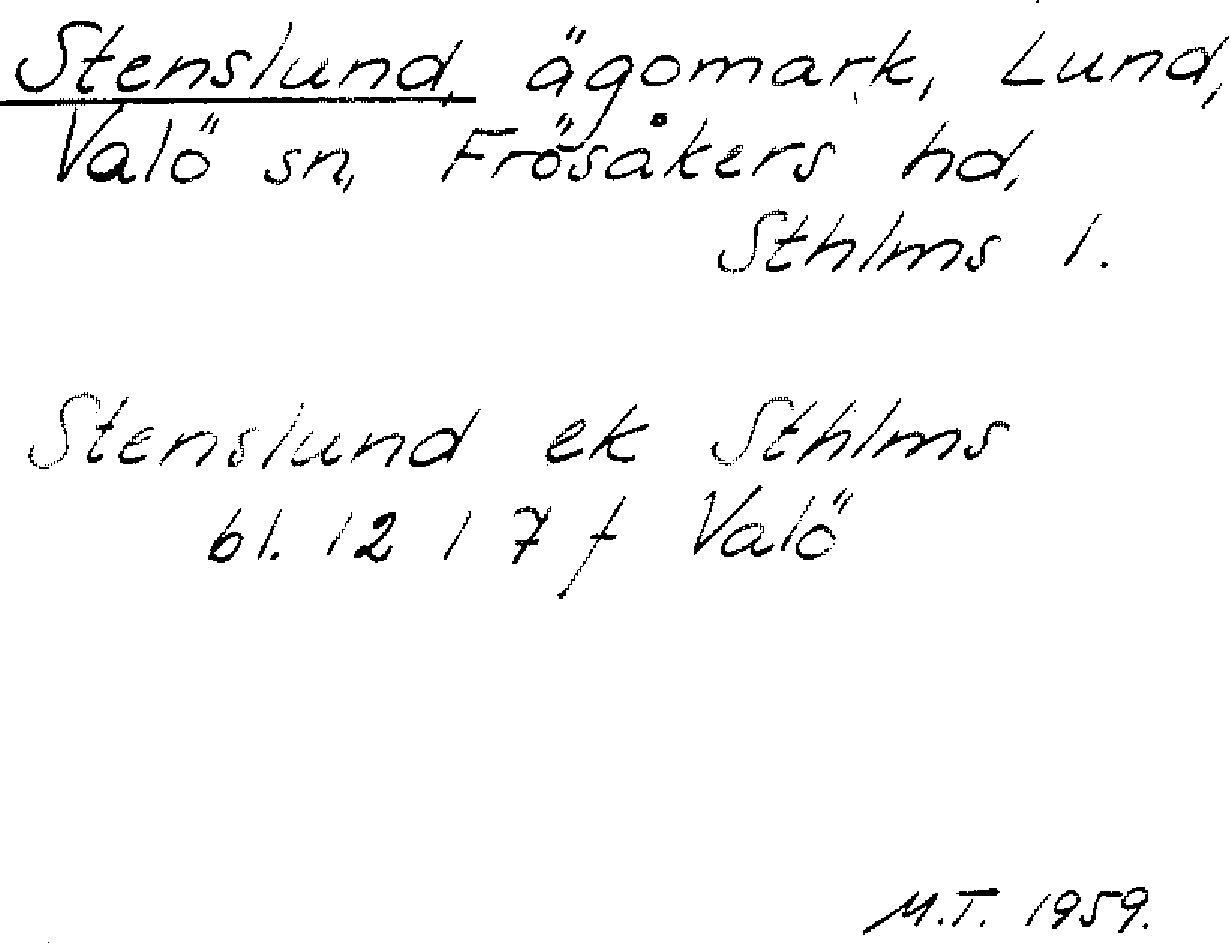 Stenslund, ägomark, Lund,
Valö sn, Frösåkers hd,
Sthlms l.
Stenslund ek Sthlms
bl. 12 I 7 f Valö
M.T. 1959.